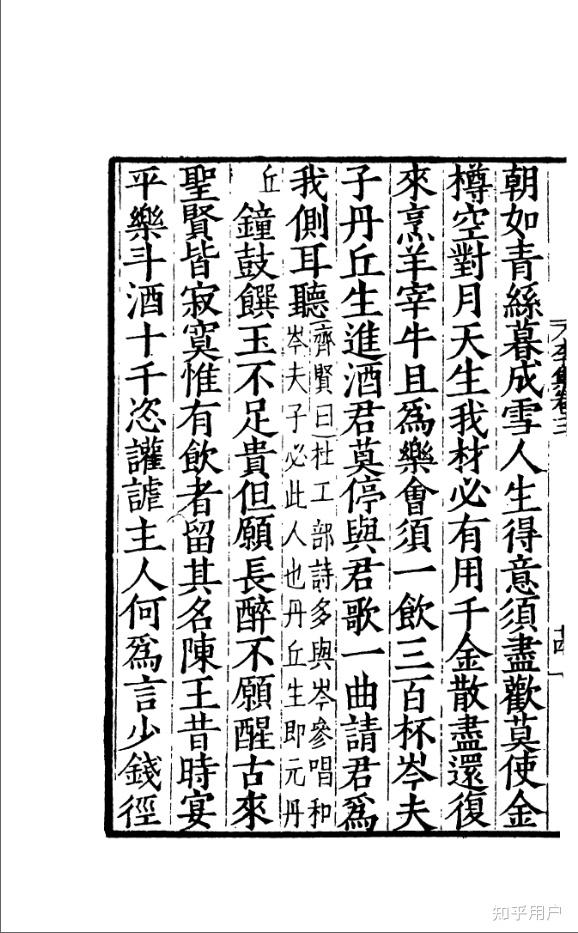 李集卷三
十四
朝如青絲暮成雪人生得意須盡歡莫使金
樽空對月天生我材必有用千金散盡還復
來烹羊宰牛且爲樂會須一飲三百杯岑夫
子丹丘生進酒君莫停與君歌一曲請君爲
我側耳聽
齊賢曰杜工部詩多與岑參唱和
岑夫子必此人也丹丘生即元丹
丘
鐘鼓饌玉不足貴但願長醉不願醒古來
聖賢皆寂寞惟有飲者留其名陳王昔時宴
平樂斗酒十千恣讙謔主人何爲言少錢徑
知乎用户